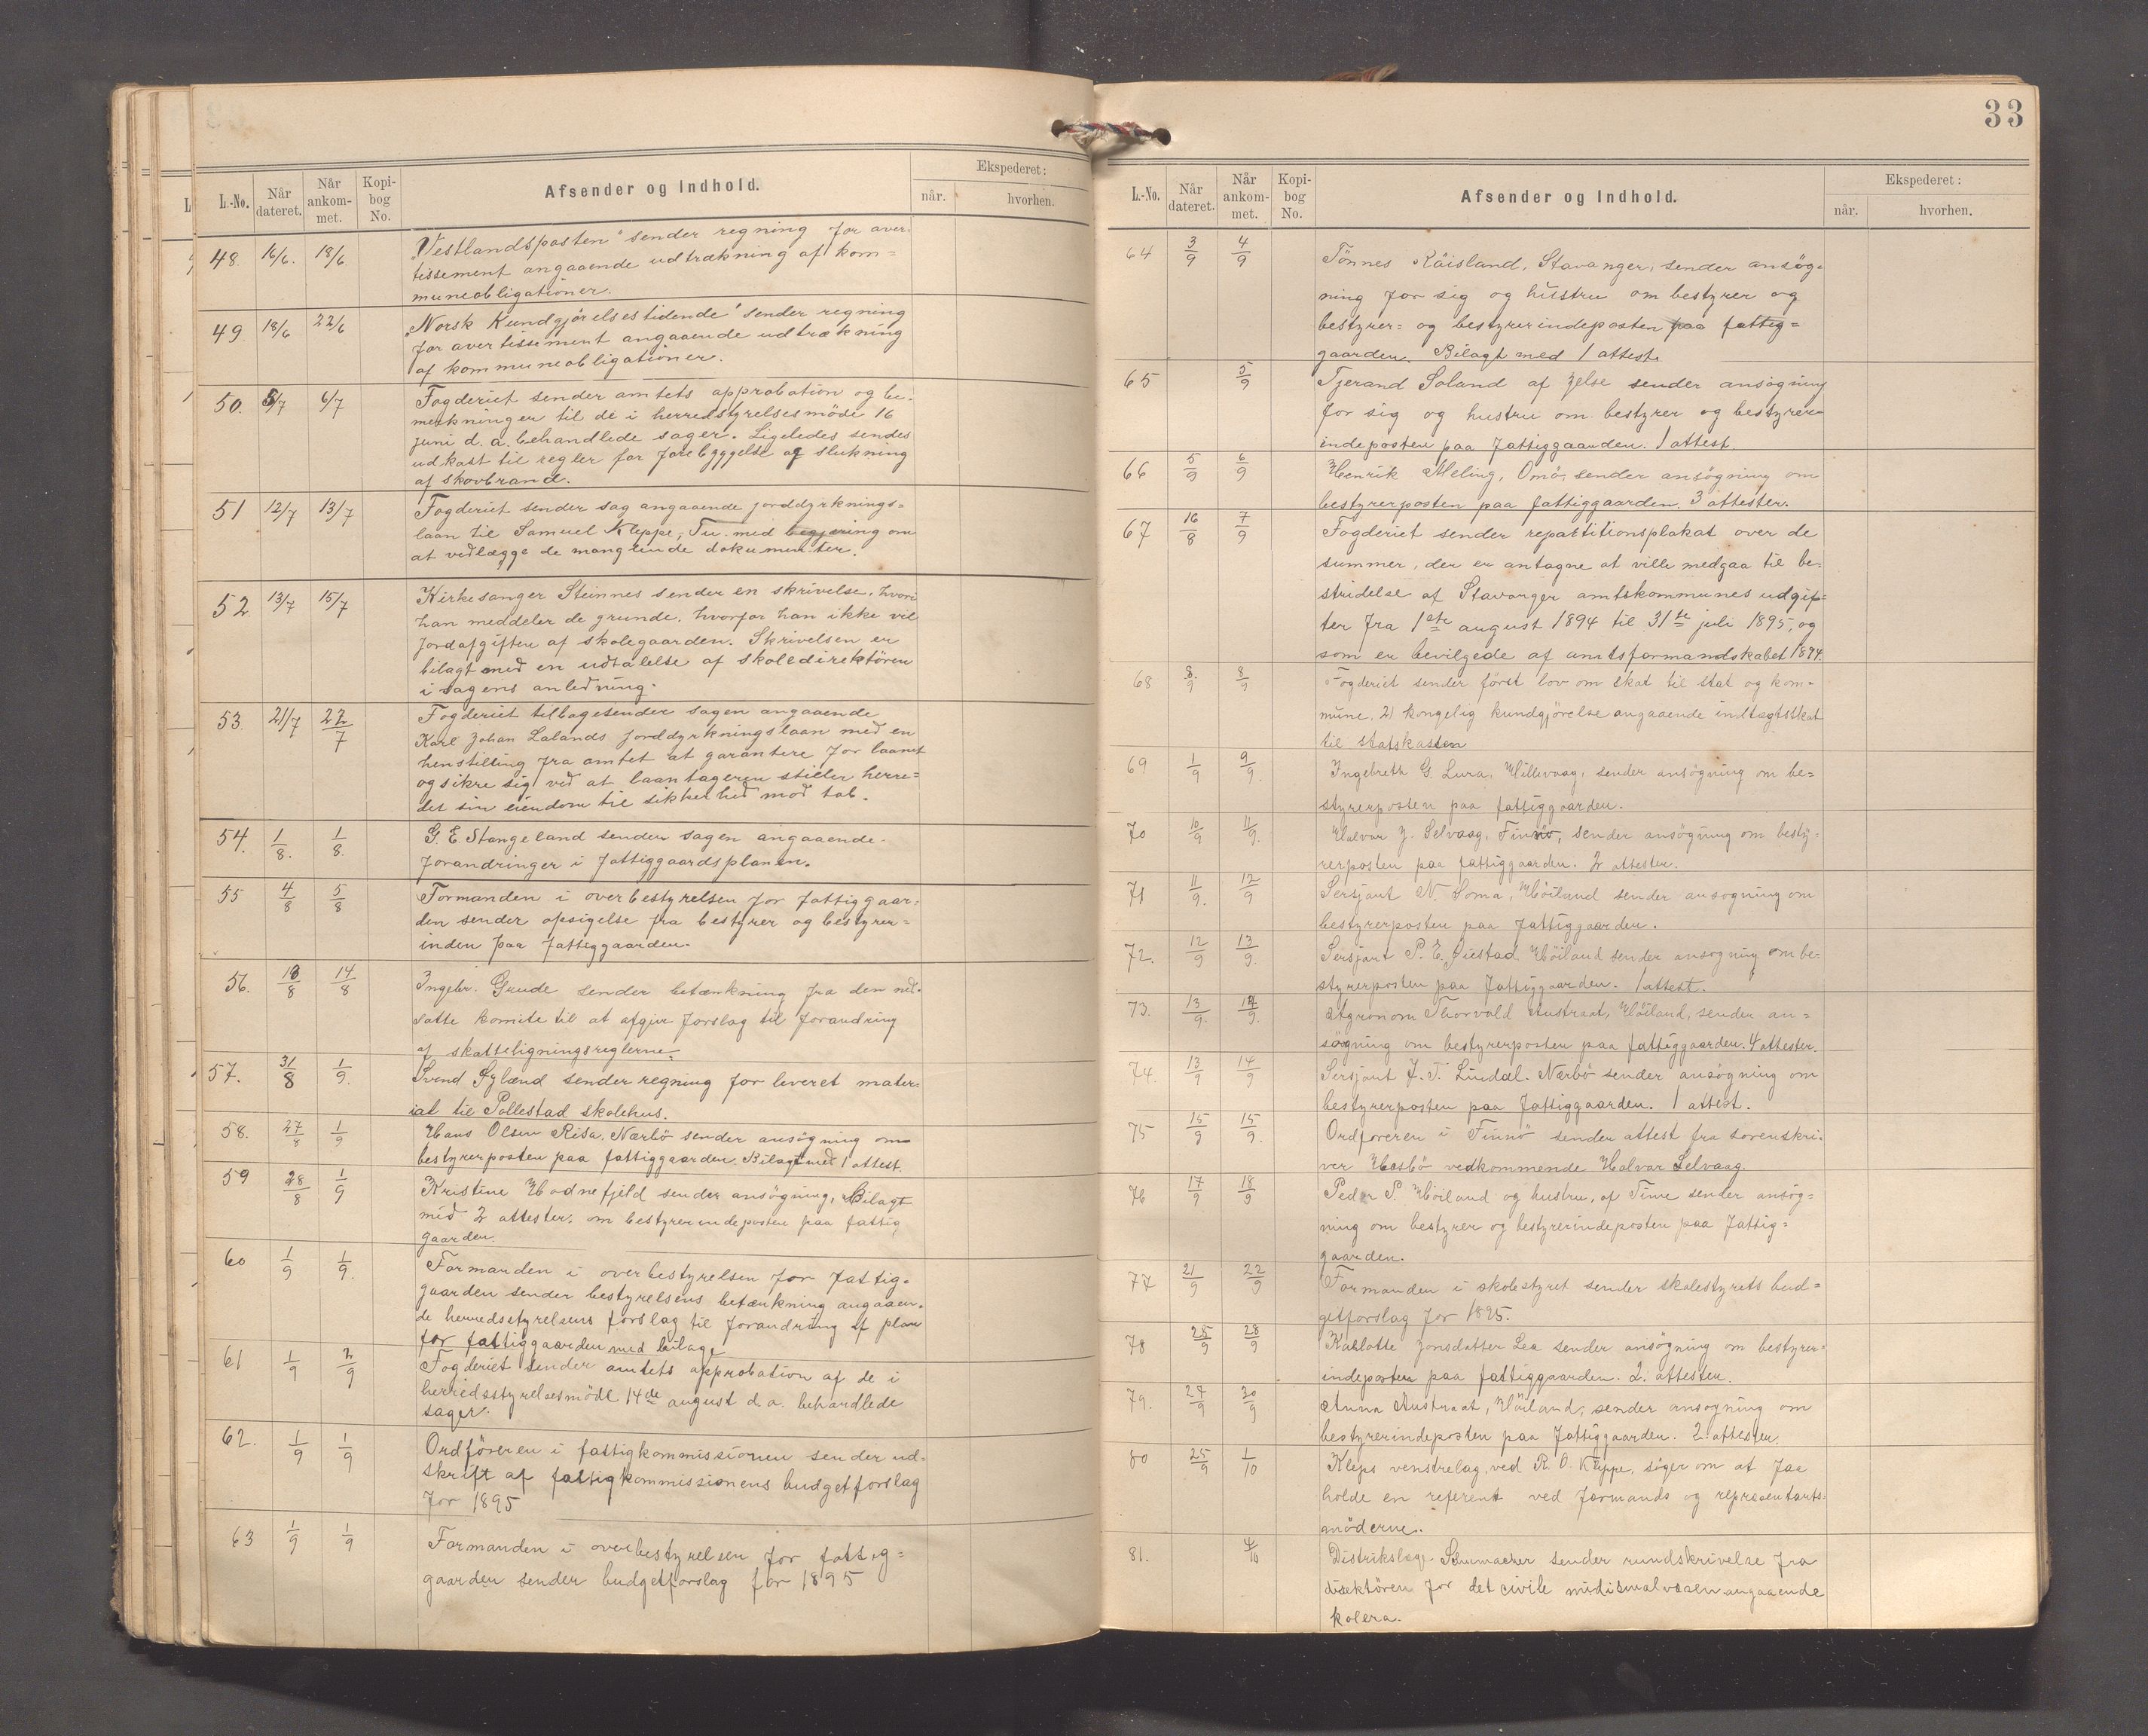 L.-No. Når dateret. Når ankommet. Kopibog No. Afsender og Indhold. Ekspederet: når. hvorhen.
48 16/6. 18/6 „Vestlandsposten" sender regning for aver-
tissement angaaende udtrækning af kom=
muneobligationer.
49 18/6 22/6 „Norsk Kundgjörelsestidende" sender regning
for avertissement angaaende udtrækning
af kommuneobligationer.
50. 5/7 6/7 Fogderiet sender amtets approbation og be-
merkninger til de i herredstyrelsesmöde 16
juni d. a. behandlede sager. Ligeledes sendes
udkast til regler for forebyggelse og slukning
af skovbrand.
51 12/7 13/7 Fogderiet sender sag angaaende jorddyrknings=
laan til Samuel Kleppe, Tu. med begjæring om
at vedlægge de manglende dokumenter.
52 13/7 15/7 Kirkesanger Steinnes sender en skrivelse, hvori
han meddeler de grunde, hvorfor han ikke vil
jordafgiften af skolegaarden. Skrivelsen er
bilagt med en udtalelse af skoledirektören
i sagens anledning.
53. 21/7 22/7 Fogderiet tilbagesender sagen angaaende
Karl Johan Lalands jorddyrkningslaan med en
henstilling fra amtet at garantere for laanet
og sikre sig ved at laantageren stiller herre=
det sin eiendom til sikkerhed mod tab.
54. 1/8. 1/8. G. E. Stangeland sender sagen angaaende
forandringer i fattiggaardsplanen.
55 4/8 5/8 Formanden i overbestyrelsen for fattiggaar-
den sender opsigelse fra bestyrer og bestyrer=
inden paa fattiggaarden.
56. 13/8 14/8 Ingebr. Grude sender betænkning fra den ned-
satte komite til at afgive forslag til forandring
af skatteligningsreglerne.
57. 31/8 1/9. Svend Sgland sender regning for leveret mater-
ial til Pollestad skolehus.
58. 27/8 1/9 Hans Olsen Risa, Nærbö sender ansögning om
bestyrerposten paa fattiggaarden. Bilagt med 1 attest.
59 28/8 1/9 Kristine Hodnefjeld sender ansögning, Bilagt
med 2 attester, om bestyrerindeposten paa fattig
gaarden.
60 1/9 1/9. Formanden i overbestyrelsen for fattig-
gaarden sender bestyrelsens betænkning angaaen-
de herredsstyrelsens forslag til forandring af plan
for fattiggaarden med bilage
61 1/9 2/9 Fogderiet sender amtets approbation af de i
herredsstyrelsesmöde 14de august d. a. behandlede
sager.
62. 1/9 1/9 Ordföreren i fattigkommissionen sender ud-
skrift af fattigkommissionens budgetforslag
for 1895
63 1/9 1/9 Formanden i overbestyrelsen for fattig=
gaarden sender budgetforslag for 1895
33
L.-No. Når dateret. Når ankommet. Kopibog No. Afsender og Indhold. Ekspederet: når. hvorhen.
64 3/9 4/9 Tönnes Råisland, Stavanger, sender ansög-
ning for sig og hustru om bestyrer og
bestyrer= og bestyrerindeposten paa fattig=
gaarden. Bilagt med 1 attest.
65 5/9 Tjerand Soland af Jelse sender ansögning
for sig og hustru om bestyrer og bestyrer=
indeposten paa fattiggaarden. 1 attest.
66 5/9 6/9 Henrik Meling, Omö, sender ansögning om
bestyrerposten paa fattiggaarden. 3 attester.
67 16/8 7/9 Fogderiet sender repartitionsplakat over de
summer, der er antagne at ville medgaa til be-
stridelse af Stavanger amtskommunes udgif=
ter fra 1ste august 1894 til 31te juli 1895, og
som er bevilgede af amtsformandskabet 1894.
68 8/9 8/9 Fogderiet sender först lov om skat til stat og kom-
mune, 2) kongelig kundgjörelse angaaende indtægtsskat
til statskassen
69 1/9 9/9. Ingebreth G. Lura, Hillevaag, sender ansögning om be=
styrerposten paa fattiggaarden.
70 10/9 11/9. Halvar J. Selvaag, Finnö, sender ansögning om besty=
rerposten paa fattiggaarden. 2 attester.
71 11/9. 12/9 Sersjant N. Soma, Höiland sender ansögning om
bestyrerposten paa fattiggaarden.
72. 12/9 13/9. Sersjant P. E. Öiestad Höiland sender ansögning om be-
styrerposten paa fattiggaarden. 1 attest.
73. 13/9. 14/9. Agronom Thorvald Austraat, Höiland, sender an=
sögning om bestyrerposten paa fattiggaarden. 4 attester.
74. 13/9 14/9 Sersjant J. T. Lindal. Nærbö sender ansögning om
bestyrerposten paa fattiggaarden. 1 attest.
75 15/9 15/9. Ordföreren i Finnö sender attest fra sorenskri-
ver Hesbö vedkommende Halvar Selvaag.
76 17/9 18/9 Peder P. Höiland og hustru, af Time sender ansög-
ning om bestyrer og bestyrerindeposten paa fattig=
gaarden.
77 21/9 22/9 Formanden i skolestyret sender skolestyrets bud=
getforslag for 1895.
78 25/9 28/9 Kallotte Jonsdatter Lea sender ansögning om bestyrer-
indeposten paa fattiggaarden. 2 attester.
79. 27/9 30/9 Anna Austraat, Höiland, sender ansögning om
bestyrerindeposten paa fattiggaarden. 2 attester.
80 25/9 1/10 Kleps venstrelag, ved R. O. Kleppe, söger om at faa
holde en referent ved formands og repræsentants-
möderne.
81. 4/10 Distrikslæge Schumacher sender rundskrivelse fra
direktören for det civile medicinalvæsen angaaende
kolera.